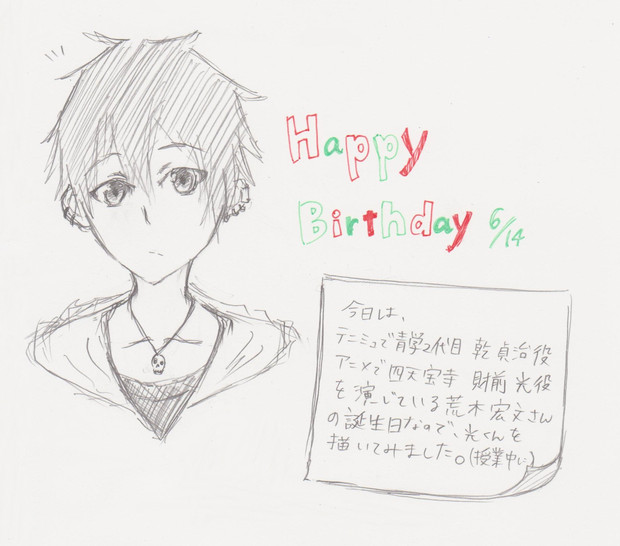 Happy
Birthday 6/14
今日は、
テニミュで青学2代目 乾 貞治役
アニメで四天宝寺 財前 光役
を演じている荒木宏文さん
の誕生日なので、光くんを
描いてみました。(授業中に)